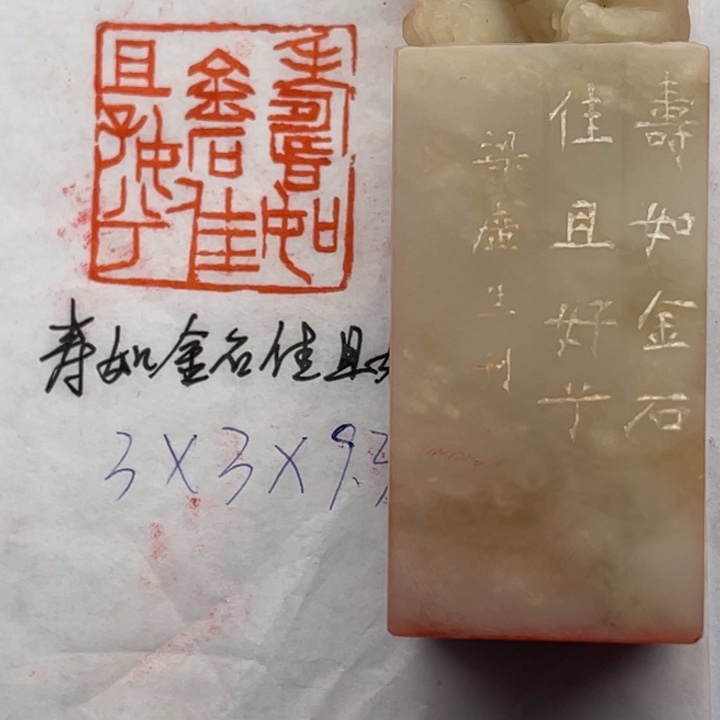 壽如
金石佳
且好兮
寿如金石佳且
3X3X9.
壽如金石
佳且好兮
梁虚生刊